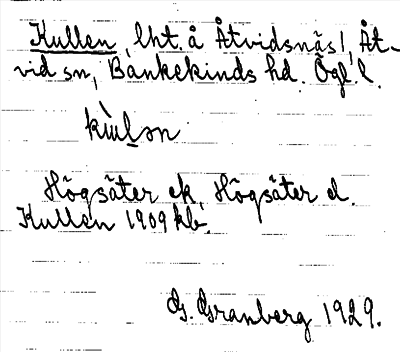 Kullen, lht. å Åtvidsnäs, Åt-
vid sn, Bankekinds hd. Ögl. l.
Högsäter ek, Högsäter el.
Kullen 1909 kb.
G. Granberg 1929.